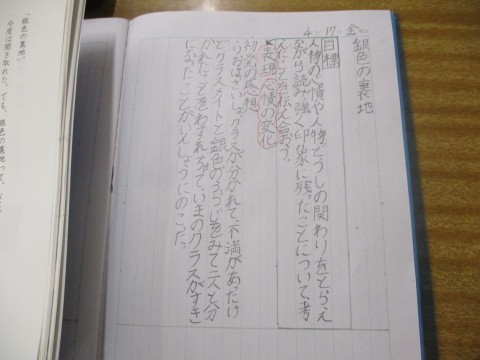 全
銀色の裏地
4.17
目標
人物の心情や人物どうしの関わりをとらえ
ながら読み、強く印象に残ったことについて考
えたことを伝え合おう。
表現 心情の変化
初発の感想
クラスが分かれて、不満があったけ
どクラスメイトと銀色の
かれたことをわすれちゃて、いまのクラスがすき
になったことがいんしょうにのこった。
「銀色の裏地」
今度は聞き取れた。でも、銀色の裏地って、